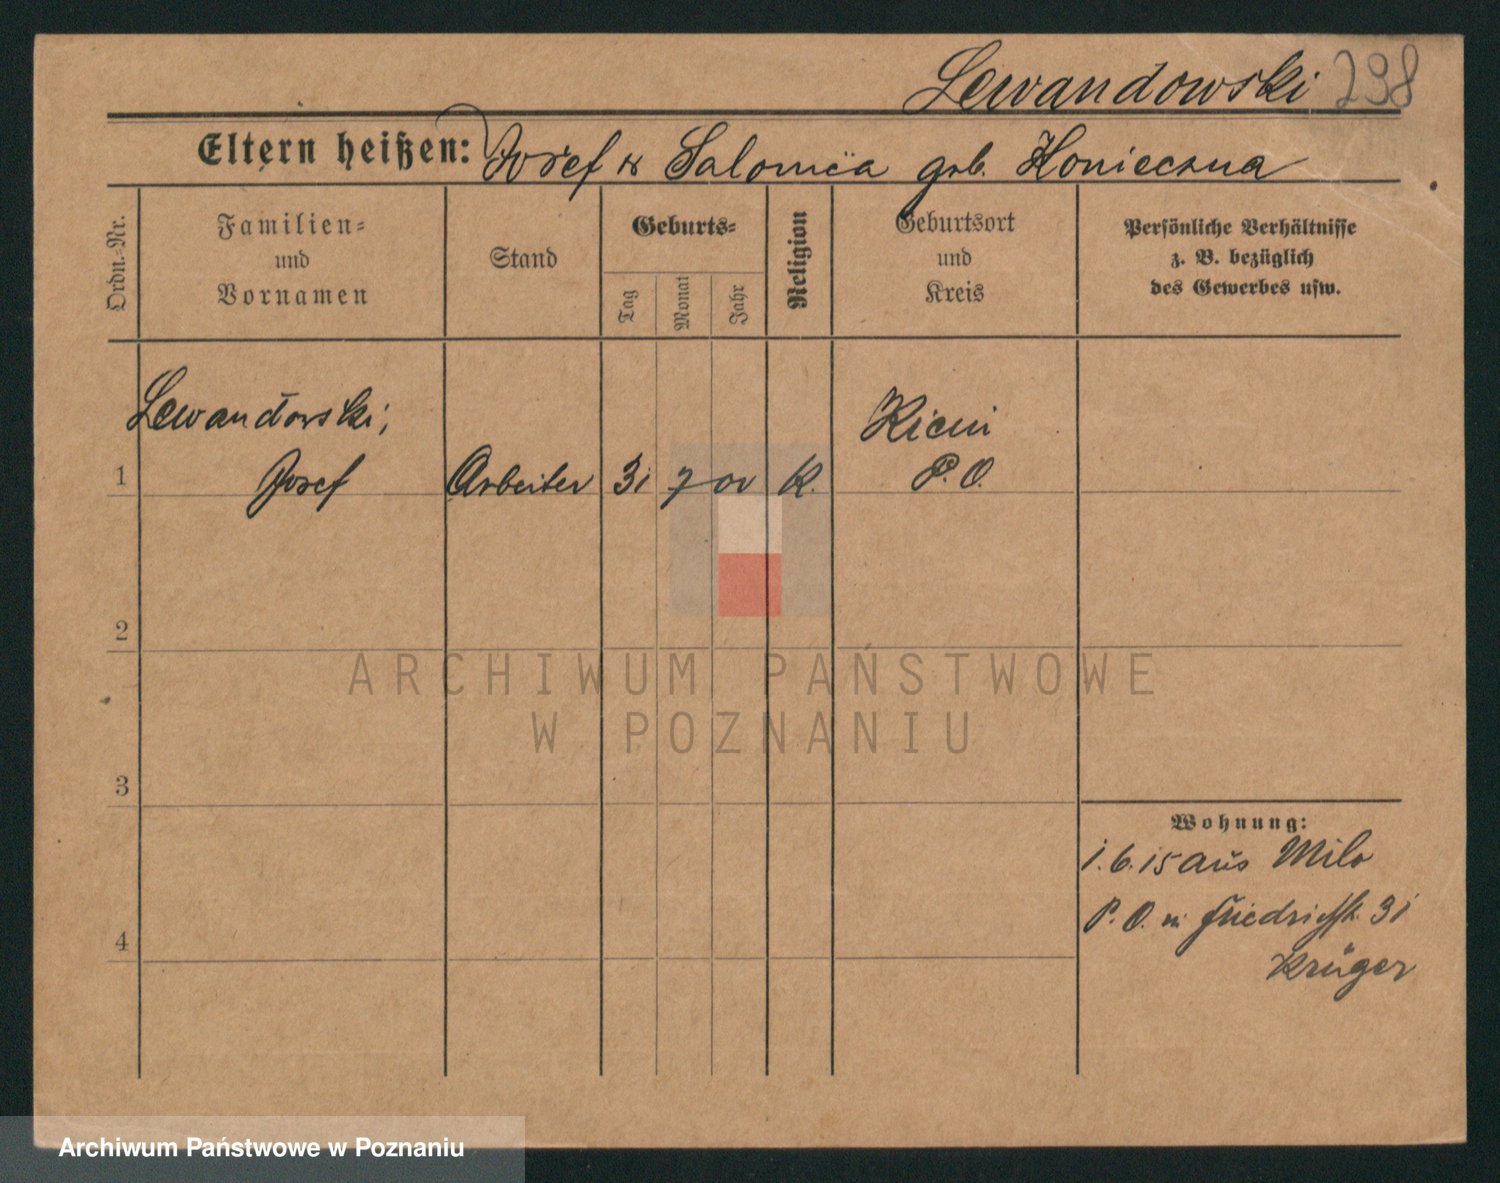 Lewandowski 298
Eltern heißen: Josef u Salomea geb. Konieczna
Ordn.-Nr.
Familien-
und
Vornamen
Stand
Geburts-
Tag
Monat
Jahr
Religion
Geburtsort
und
Kreis
Persönliche Verhältnisse
z. B. bezüglich
des Gewerbes usw.
Lewandowski,
1 Josef Arbeiter 31 7 00 K.
Kicin
P. O.
2
3
4
Wohnung:
1. 6. 15 aus Milo
P. O. n Friedrichstr. 31
Krüger
ARCHIWUM PAŃSTWOWE
W POZNANIU
Archiwum Państwowe w Poznaniu